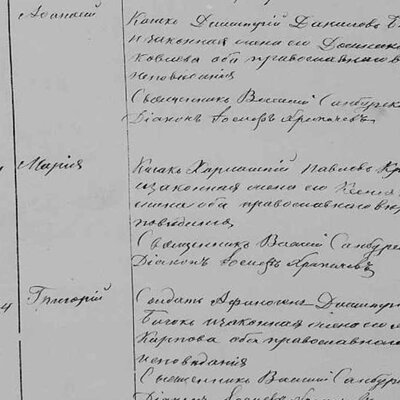 Афанасій
Казакъ Димитрій Даниловъ Б
и законная жена его Домник
Ковлева оба православнаго в
исповѣданія
Священникъ Василій Самбурс
Діаконъ Іосифъ Хрипачевъ
Марія
Казакъ Харлампій Павловъ Кр
и законная жена его Ксенія
оба православнаго в
повѣданія
Священникъ Василій Самбурс
Діаконъ Іосифъ Хрипачевъ
4
Григорій
Солдатъ Афиногенъ Димитр
и законная жена его
Карпова оба православнаго
исповѣданія
Священникъ Василій Самбур
Діаконъ Іосифъ